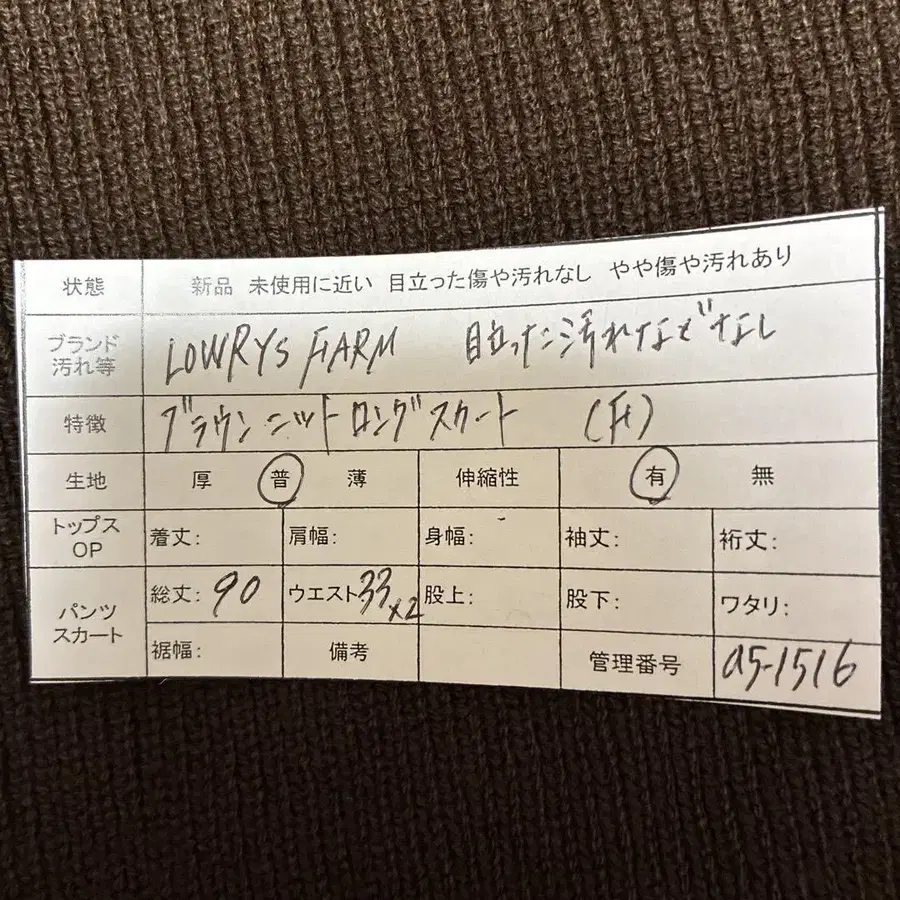 状態 新品 未使用に近い 目立った傷や汚れなし やや傷や汚れあり
ブランド
汚れ等 LOWRYS FARM 目立った汚れなどなし
特徴 ブラウン ニット ロング スカート (F)
生地 厚 普 薄 伸縮性 有 無
トップス
OP 着丈: 肩幅: 身幅: 袖丈: 裄丈:
パンツ
スカート 総丈: 90 ウエスト 33×2 股上: 股下: ワタリ:
裾幅: 備考 管理番号 a5-1516